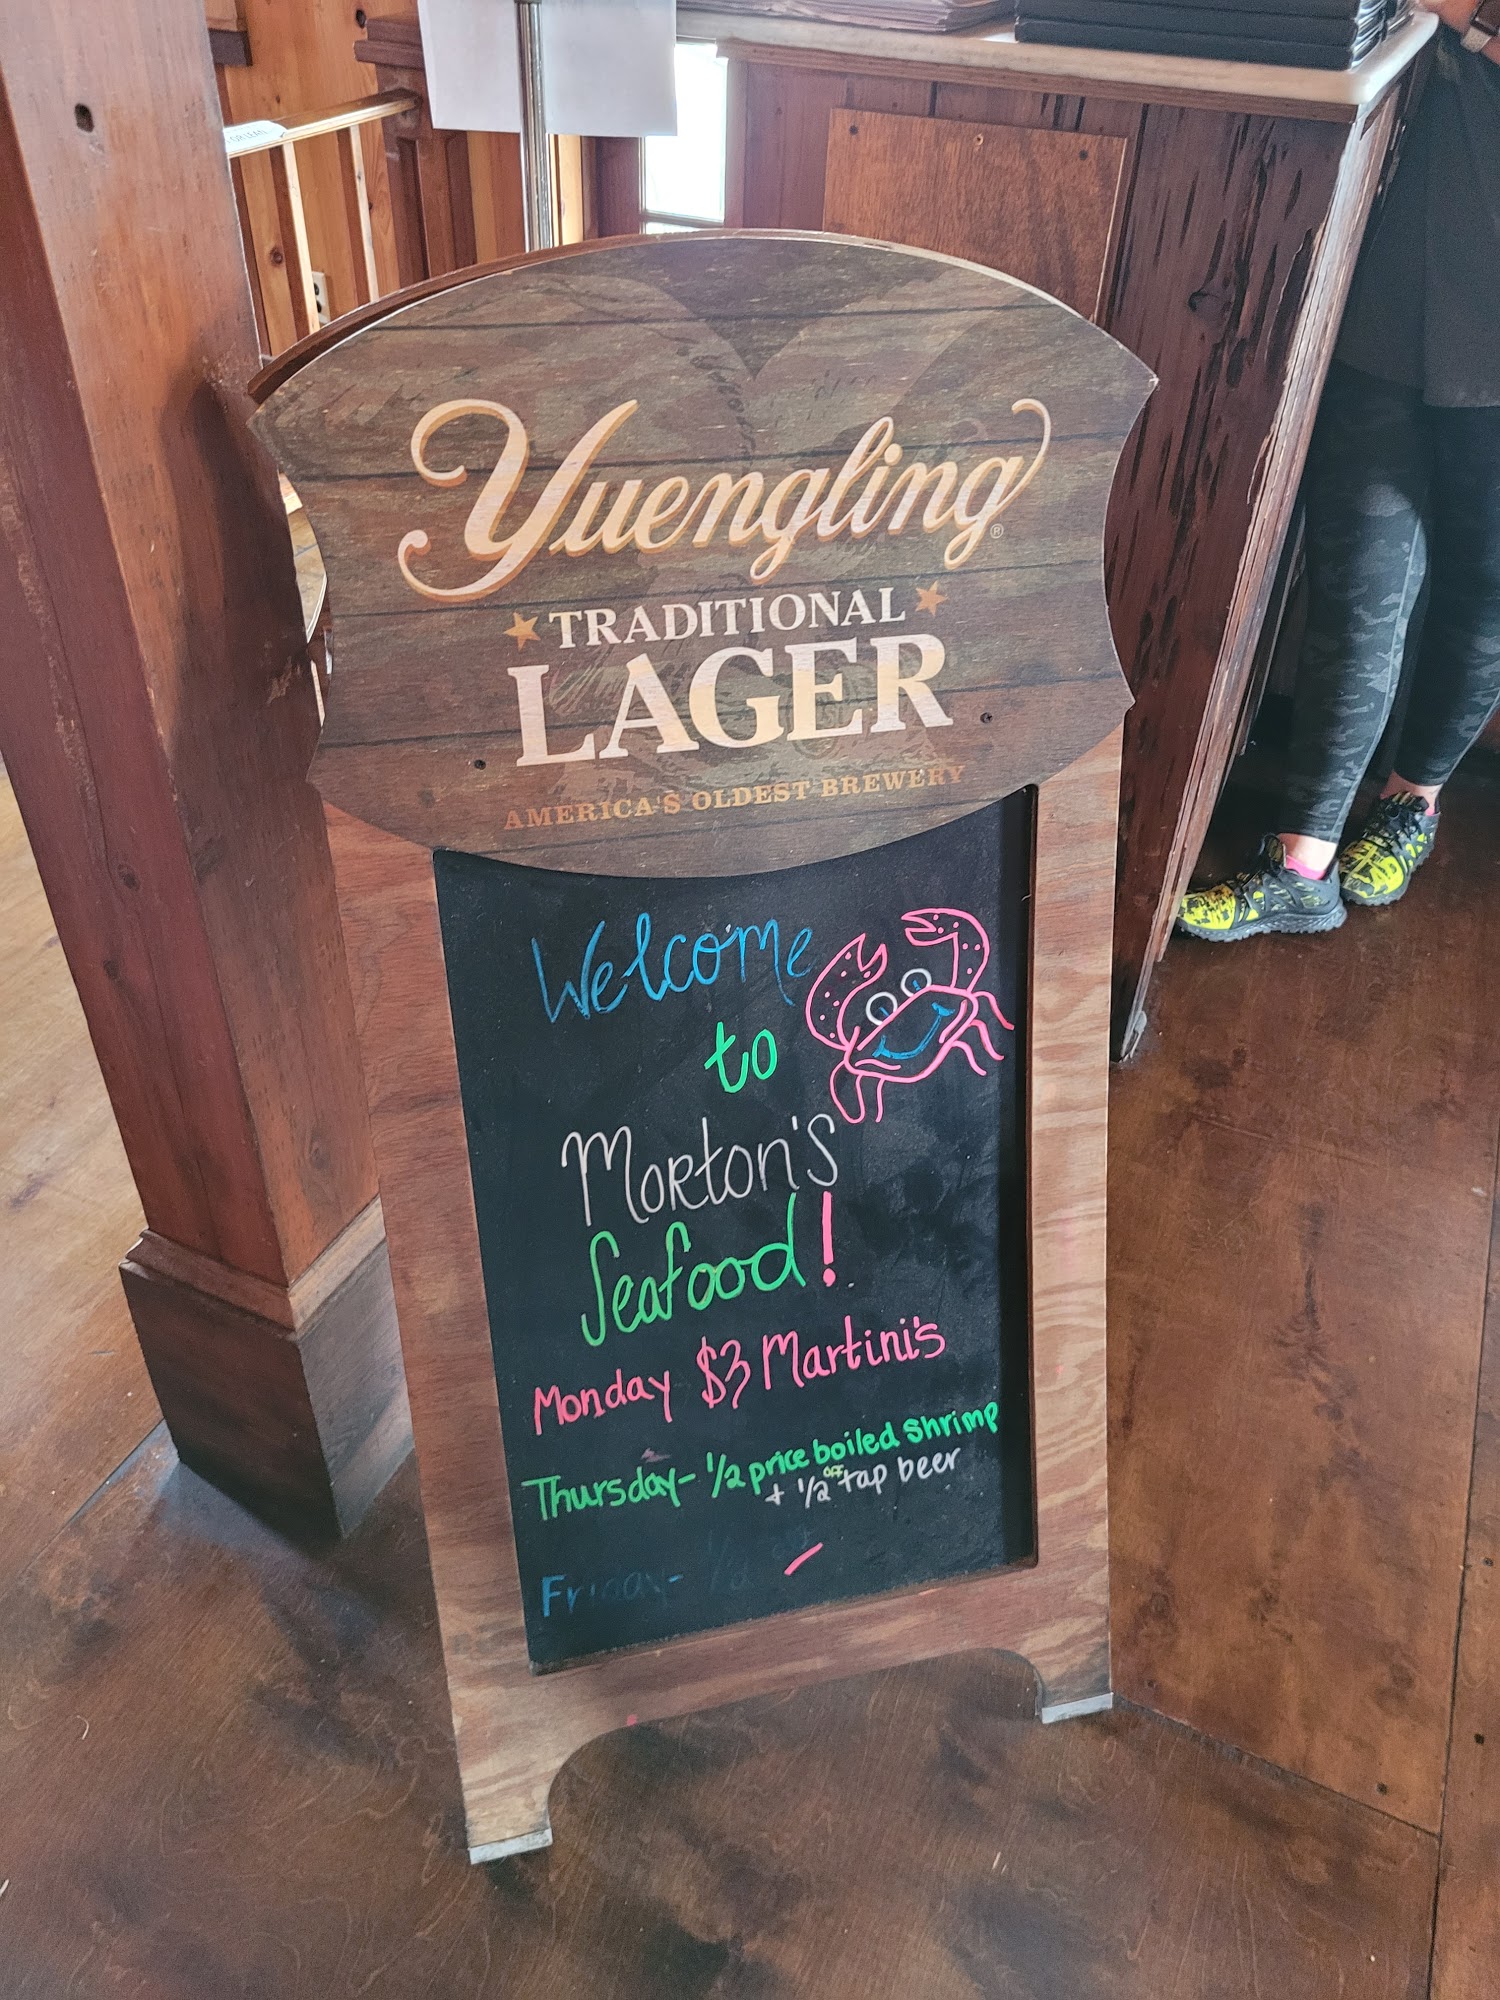 OR LEAN
Yuengling®
TRADITIONAL
LAGER
AMERICA'S OLDEST BREWERY
Welcome
to
Morton's
Seafood!
Monday $3 Martini's
Thursday- 1/2 price boiled Shrimp
+ 1/2 off tap beer
Friday- 1/2